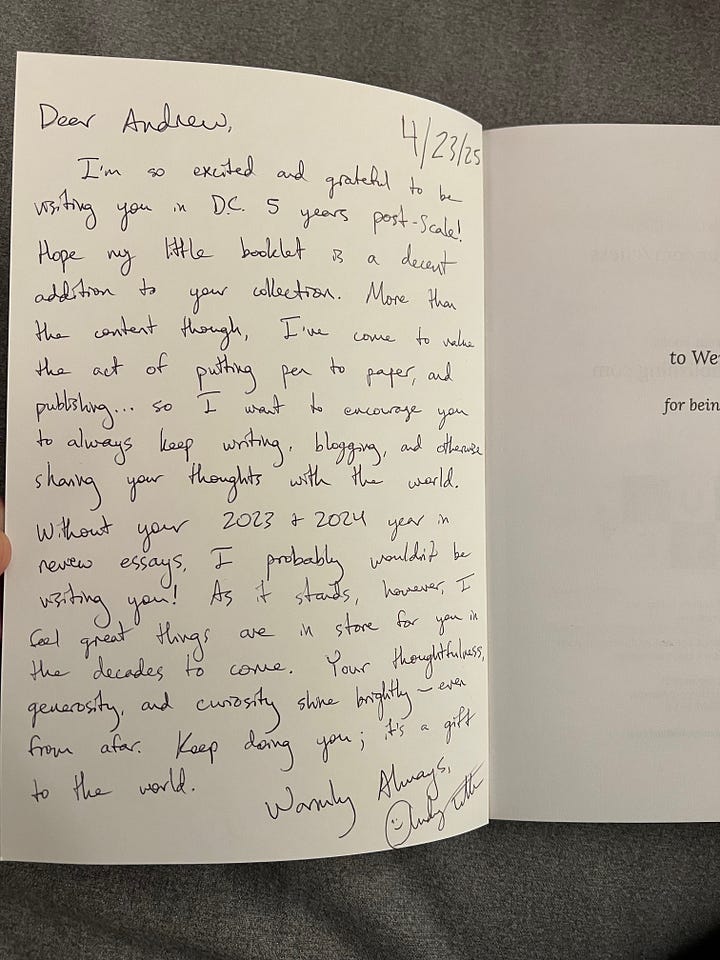 Dear Andrew,
4/23/25
I'm so excited and grateful to be
visiting you in D.C. 5 years post-Scale!
Hope my little booklet is a decent
addition to your collection. More than
the content though, I've come to value
the act of putting pen to paper, and
publishing... so I want to encourage you
to always keep writing, blogging, and otherwise
sharing your thoughts with the world.
Without your 2023 + 2024 year in
review essays, I probably wouldn't be
visiting you! As it stands, however, I
feel great things are in store for you in
the decades to come. Your thoughtfulness,
generosity, and curiosity shine brightly – even
from afar. Keep doing you; it's a gift
to the world.
Warmly Always,
Andy
to We
for bein